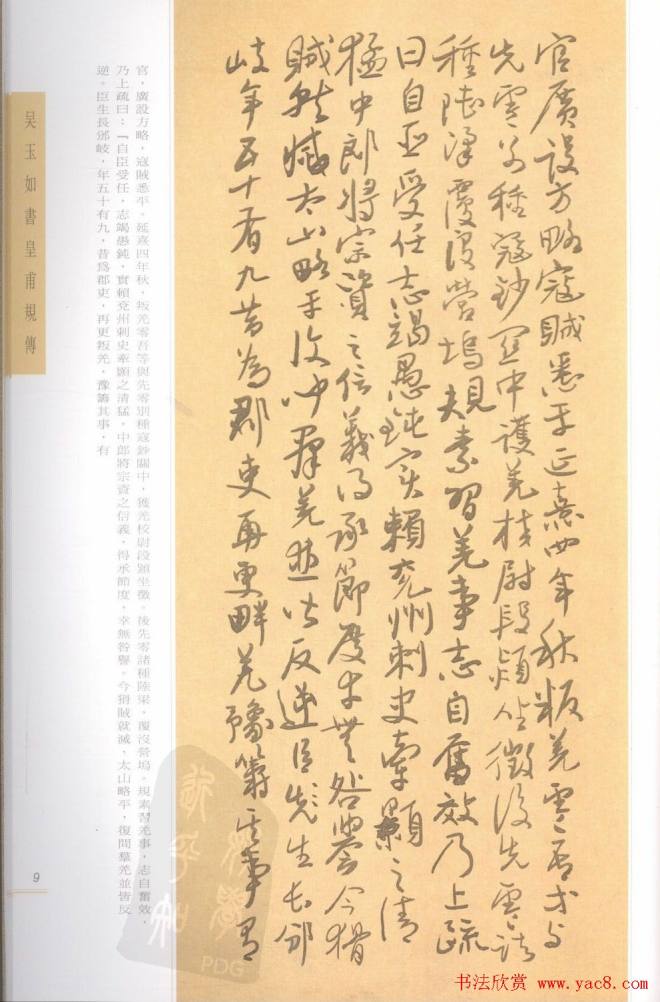 官廣設方略寇賊悉平延熹四年秋叛羌零吾等与
先零別種寇鈔關中護羌校尉段熲坐徵後先零諸
種陸梁覆沒營塢規素習羌事志自奮效乃上疏
曰自臣受任志竭愚鈍實賴兗州刺史牽顥之清
猛中郎將宗資之信義得承節度幸無咎譽今猾
賊就滅太山略平復聞群羌並皆反逆臣生長邠
岐年五十有九昔為郡吏再更叛羌豫籌其事有
官，廣設方略，寇賊悉平。延熹四年秋，叛羌零吾等與先零別種寇鈔關中，護羌校尉段熲坐徵。後先零諸種陸梁，覆沒營塢。規素習羌事，志自奮效，
乃上疏曰：「自臣受任，志竭愚鈍，實賴兗州刺史牽顥之清猛，中郎將宗資之信義，得承節度，幸無咎譽。今猾賊就滅，太山略平，復聞羣羌並皆反
逆。臣生長邠岐，年五十有九，昔爲郡吏，再更叛羌，豫籌其事，有
吴玉如書皇甫規傳
9
PDG
书法欣赏 www.yac8.com